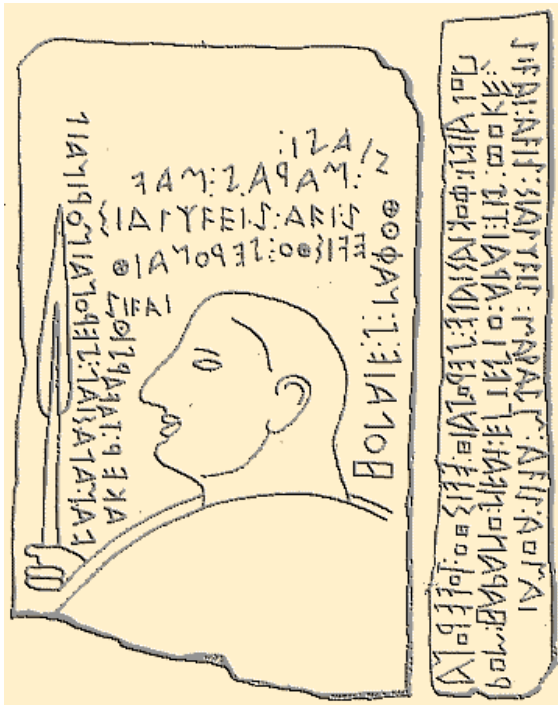 ΗΟΛΑΙΕΖ:ΝΑΦΟΘ
ΖΙΑΖΙ:
ΜΑΡΑΖ:ΜΑϜ
ΣΙΑΛΧϜΕΙΖ:ΑϜΙΖ
ΕϜΙΣΘΟ:ΖΕΡΟΝΑΙΘ
ΖΙϜΑΙ
ΑΚΕΡ:ΤΑϜΑΡΖΙΟ
ϜΑΝΑΛΑΣΙΑΛ:ΖΕΡΟΝΑΙ:ΜΟΡΙΝΑΙΛ
ΗΟΛΑΙΕΖΙ:ΦΟΚΙΑΣΙΑΛΕ:ΖΕΡΟΝΑΙΘ:ΕϜΙΣΘΟ:ΤΟϜΕΡΟΝΑ
ΡΟΜ:ΗΑΡΑΛΙΟ:ΖΙϜΑΙ:ΕΠΤΕΖΙΟ:ΑΡΑΙ:ΤΙΖ:ΦΟΚΕ
ΖΙϜΑΙ:ΑϜΙΖ:ΣΙΑΛΧϜΙΖ:ΜΑΡΑΖΜ:ΑϜΙΖ:ΑΟΜΑΙ